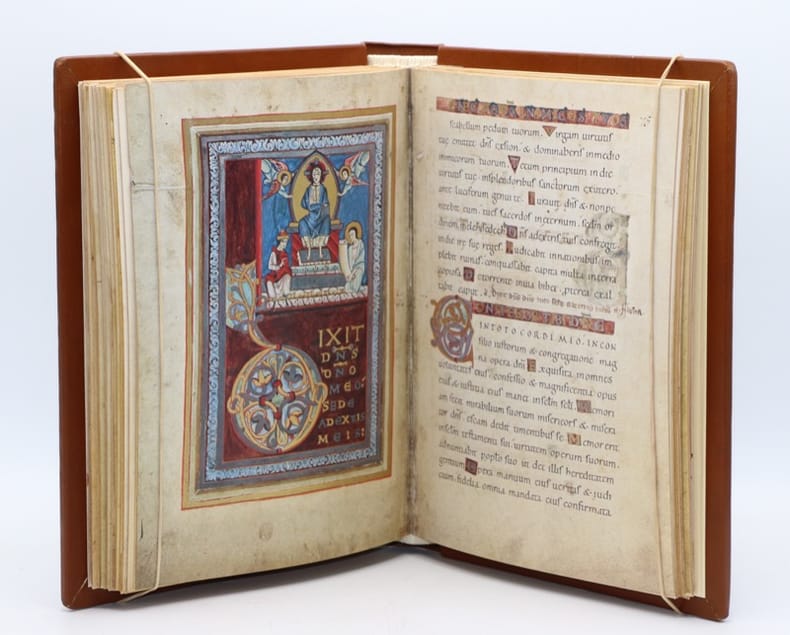 DIXIT
DNS
DNO
MEO
SEDE
ADEXTRIS
MEIS:
scabellum pedum tuorum. Virgam uirtutis
tuę emittet dns exsion. & dominaberis inmedio
inimicorum tuorum. Tecum principium indie
uirtutis tuę insplendoribus sanctorum exutero.
ante luciferum genui te. Iurauit dns & nonpe
nitebit eum. tu es sacerdos inęternum. sedm or
dinem melchisedech. Dns adextris tuis confregit
indie irę suę reges. Iudicabit innationibus im
plebit ruinas. conquassabit capita multa interra
copiosa. De torrente inuia bibet. pterea exal
tabit caput.
CONFITEBOR TIBI DNE
INTOTO CORDE MEO. INCON
silio iustorum & congregatione mag
na opera dni. Exquisita inomnes
uoluntates eius. confessio & magnificentia opus
eius & iustitia eius manet insęclm sęcli. Memori
am fecit mirabilium suorum misericors & misera
tor dns. escam dedit timentibus se. Memor erit
insęclm testamenti sui. uirtutem operum suorum.
adnuntiabit poplo suo ut det illis hereditatem
gentium. Opera manuum eius ueritas & iudi
cium. fidelia omnia mandata eius confirmata.